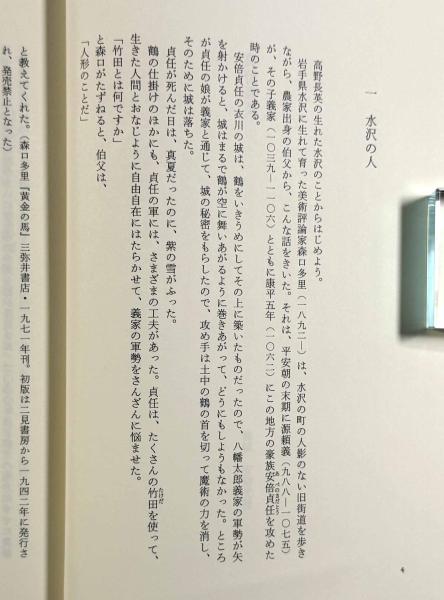 一　水沢の人
高野長英の生れた水沢のことからはじめよう。
岩手県水沢に生れて育った美術評論家森口多里（一八九二―）は、水沢の町の人影のない旧街道を歩き
ながら、農家出身の伯父から、こんな話をきいた。それは、平安朝の末期に源頼義（九八八―一〇七五）
が、その子義家（一〇三九―一一〇六）とともに康平五年（一〇六二）にこの地方の豪族安倍貞任を攻めた
時のことである。
安倍貞任の衣川の城は、鶴をいきうめにしてその上に築いたものだったので、八幡太郎義家の軍勢が矢
を射かけると、城はまるで鶴が空に舞いあがるように巻きあがって、どうにもしようもなかった。ところ
が貞任の娘が義家と通じて、城の秘密をもらしたので、攻め手は土中の鶴の首を切って魔術の力を消し、
そのために城は落ちた。
貞任が死んだ日は、真夏だったのに、紫の雪がふった。
鶴の仕掛けのほかにも、貞任の軍には、さまざまの工夫があった。貞任は、たくさんの竹田を使って、
生きた人間とおなじように自由自在にはたらかせて、義家の軍勢をさんざんに悩ませた。
「竹田とは何ですか」
と森口がたずねると、伯父は、
「人形のことだ」
と教えてくれた。（森口多里『黄金の馬』三弥井書店・一九七一年刊。初版は二見書房から一九四二年に発行さ
れ、発売禁止となった）
4